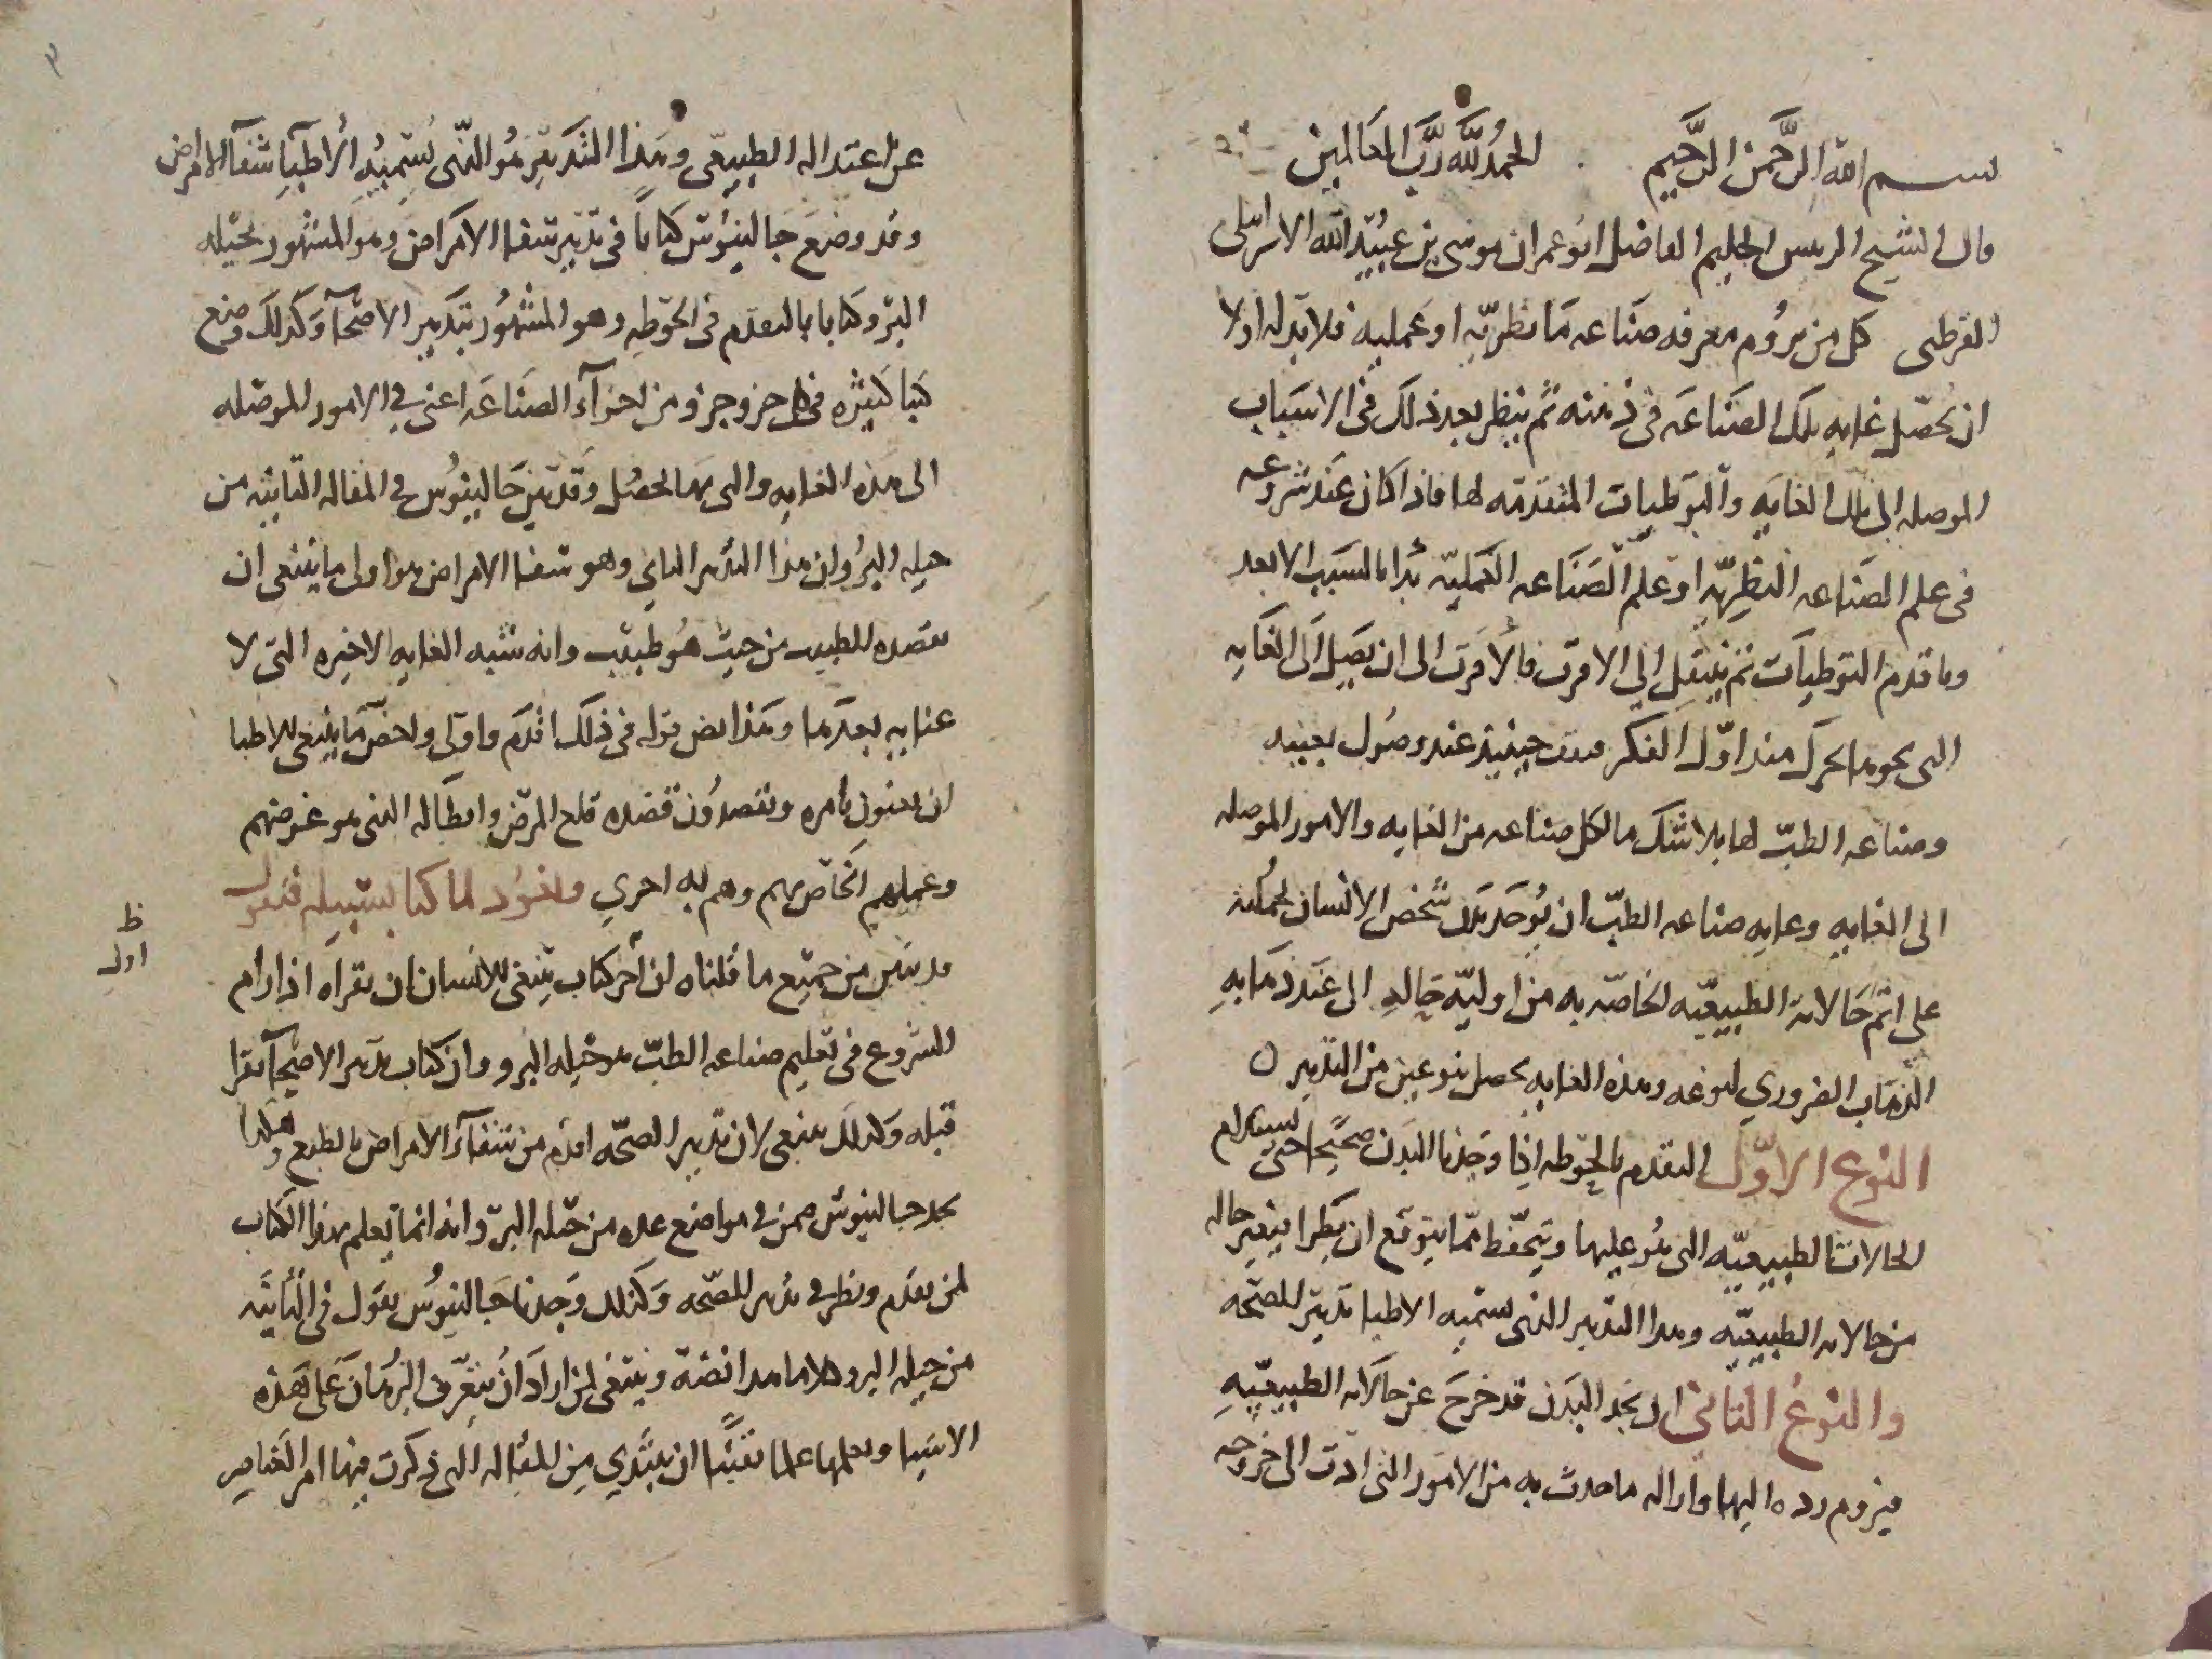 بسم الله الرحمن الرحيم الحمد لله رب العالمين
قال الشيخ الريس الحليم الفاضل ابو عمران موسى بن عبيد الله الاسرايلى
القرطبى كل من يروم معرفه صناعه ما نظريه او عمليه فلا بد له اولا
ان يحصل غايه تلك الصناعه فى ذهنه ثم ينظر بعد ذلك فى الاسباب
الموصله الى تلك الغايه والتوطيات المتقدمه لها فاذا كان عند شروعه
فى علم الصناعه النظريه او علم الصناعه العمليه بدا بالسبب الابعد
وما قدم التوطيات ثم ينتقل الى الاقرب فالاقرب الى ان يصل الى الغايه
التى نحوها تحرك منذ اول الفكر حينيذ عند وصول
وصناعه الطب لها بلا شك ما لكل صناعه من الغايه والامور الموصله
الى الغايه وغايه صناعه الطب ان يوجد بدن شخص الانسان
على اتم حالاته الطبيعيه الخاصه به من اوليه حاله الى عند ذهابه
الذهاب الضروري لنوعه وهذه الغايه يحصل بنوعين من التدبير
النوع الاول التقدم بالحوطه اذا وجدنا البدن صحيحا حتى يستدام
الحالات الطبيعيه التى هو عليها ويتحفظ مما يتوقع ان يطرا بتغير حاله
من حالاته الطبيعيه وهذا التدبير الذى يسميه الاطبا تدبير الصحه
والنوع الثانى ان نجد البدن قد خرج عن حالاته الطبيعيه
فيروم رده اليها وازاله ما حدث به من الامور التى ادت الى خروجه
عن اعتداله الطبيعى وهذا التدبير هو الذى يسميه الاطبا شفا الامراض
وقد وضع جالينوس كتابا فى تدبير شفا الامراض وهو المشهور بحيله
البرو كتابا بالتقدم فى الحوطه وهو المشهور بتدبير الاصحا وكذلك وضع
كتبا كثيره فى كل جزو جزو من اجزآء الصناعه اعنى فى الامور الموصله
الى هذه الغايه والتى بها تحصل وقد بين جالينوس فى المقاله الثانيه من
حيله البرو ان هذا التدبير الثاني وهو شفا الامراض هو اولى ما ينبغى ان
يقصده الطبيب من حيث هو طبيب وانه شبه الغايه الاخيره التى لا
غايه بعدها وهذا نص قوله فى ذلك اقدم واولى واخص ما ينبغى للاطبا
ان يعنون بامره ويقصدون قصده قلع المرض وابطاله الذى هو غرضهم
وعملهم الخاص بهم وهم به احري ونعود لما كنا بسبيله فنقول
قد تبين من جميع ما قلناه ان اخر كتاب ينبغى للانسان ان يقراه اذا رام
ظ
اول
الشروع فى تعليم صناعه الطب هو حيله البرو وان كتاب تدبير الاصحا يقرا
قبله وكذلك ينبغى لان تدبير الصحه اقدم من شفآء الامراض بالطبع وهكذا
نجد جالينوس ضمن فى مواضع عده من حيله البرو انه انما يعلم بهذا الكتاب
لمن تقدم ونظر فى تدبير الصحه وكذلك وجدنا جالينوس يقول فى الثانيه
من حيله البرو كلاما هذا نصه وينبغى لمن اراد ان يتعرف البرهان على هذه
الاشيا ويعلمها علما يقينا ان يبتدي من المقاله التى ذكرت فيها امر العناصر